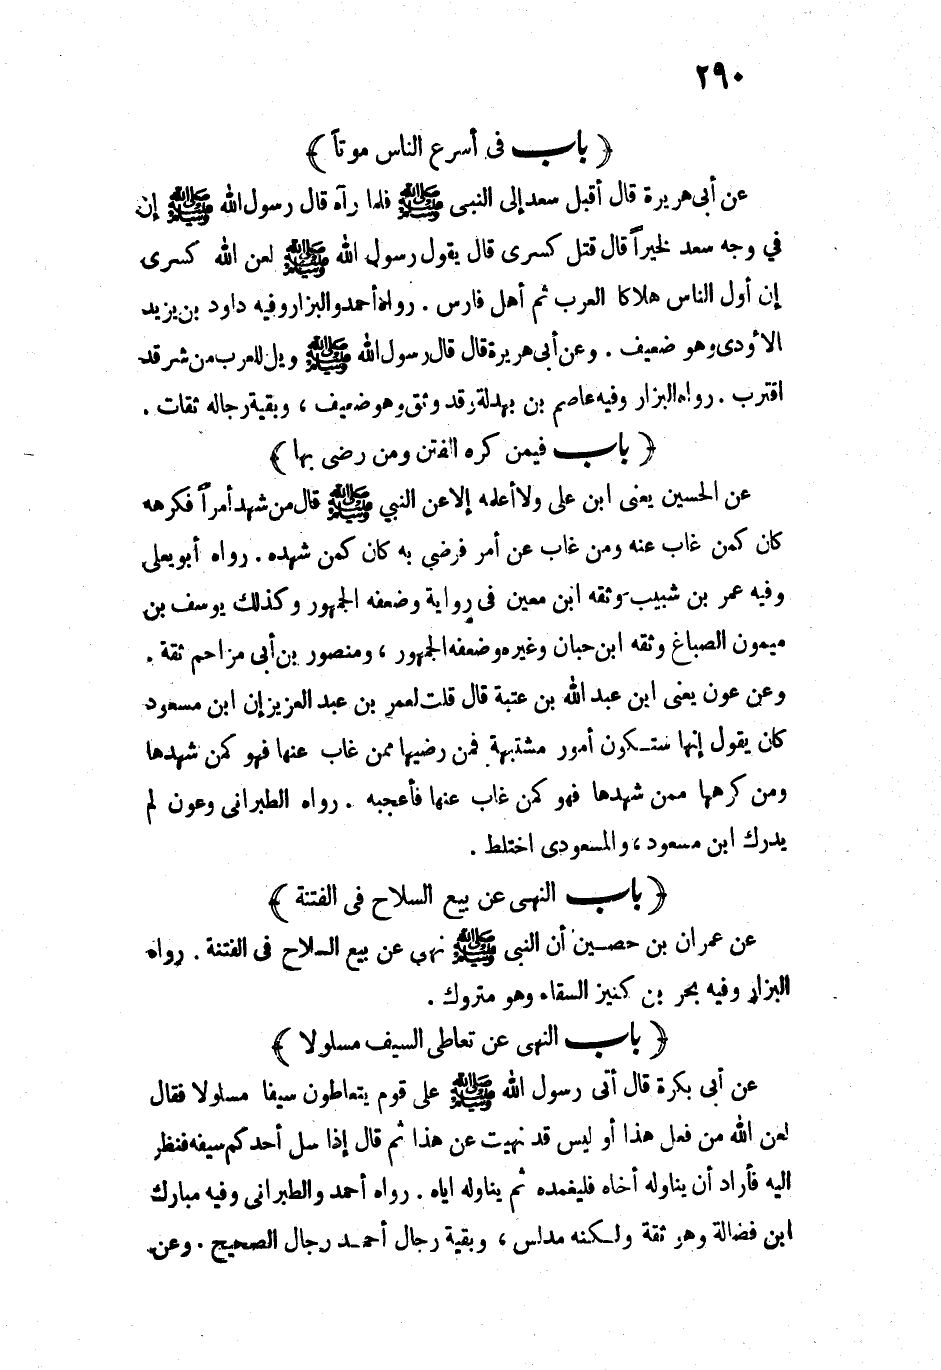 ٢٩٠
﴿ باب فى أسرع الناس موتاً ﴾
عن أبى هريرة قال أقبل سعد إلى النبى ﷺ فلما رآه قال رسول الله ﷺ إن
في وجه سعد لخيراً قال قتل كسرى قال يقول رسول الله ﷺ لعن الله كسرى
إن أول الناس هلاكا العرب ثم أهل فارس . رواه أحمد والبزار وفيه داود بن يزيد
الأودى وهو ضعيف . وعن أبى هريرة قال قال رسول الله ﷺ ويل للعرب من شر قد
اقترب . رواه البزار وفيه عاصم بن بهدلة وقد وثق وهو ضعيف ، وبقية رجاله ثقات .
﴿ باب فيمن كره الفتن ومن رضى بها ﴾
عن الحسين يعنى ابن على ولا أعلمه إلا عن النبي ﷺ قال من شهد أمراً فكرهه
كان كمن غاب عنه ومن غاب عن أمر فرضي به كان كمن شهده . رواه أبو يعلى
وفيه عمر بن شبيب وثقه ابن معين فى رواية وضعفه الجمهور وكذلك يوسف بن
ميمون الصباغ وثقه ابن حبان وغيره وضعفه الجمهور ، ومنصور بن أبى مزاحم ثقة .
وعن عون يعنى ابن عبد الله بن عتبة قال قلت لعمر بن عبد العزيز إن ابن مسعود
كان يقول إنها ستكون أمور مشتبهة فمن رضيها ممن غاب عنها فهو كمن شهدها
ومن كرهها ممن شهدها فهو كمن غاب عنها فأعجبه . رواه الطبرانى وعون لم
يدرك ابن مسعود ، والمسعودى اختلط .
﴿ باب النهى عن بيع السلاح فى الفتنة ﴾
عن عمران بن حصين أن النبى ﷺ نهى عن بيع السلاح فى الفتنة . رواه
البزار وفيه بحر بن كنيز السقاء وهو متروك .
﴿ باب النهى عن تعاطى السيف مسلولا ﴾
عن أبى بكرة قال أتى رسول الله ﷺ على قوم يتعاطون سيفا مسلولا فقال
لعن الله من فعل هذا أو ليس قد نهيت عن هذا ثم قال إذا سل أحدكم سيفه فنظر
اليه فأراد أن يناوله أخاه فليغمده ثم يناوله اياه . رواه أحمد والطبرانى وفيه مبارك
ابن فضالة وهو ثقة ولكنه مدلس ، وبقية رجال أحمد رجال الصحيح . وعن